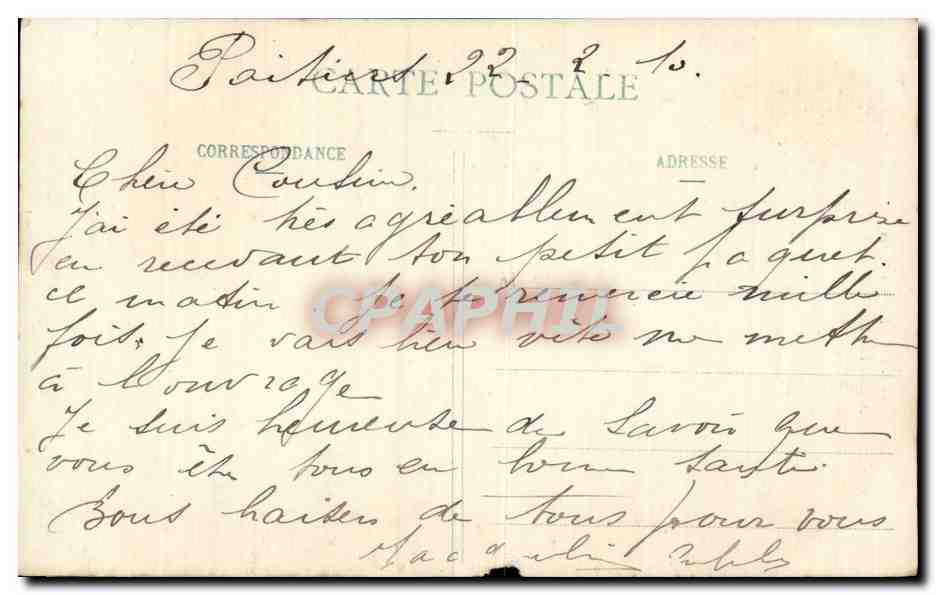 Poitiers 22_2_10.
CARTE POSTALE
CORRESPONDANCE
ADRESSE
Chère Cousine.
J'ai été très agréablement surprise
en recevant ton petit paquet.
ce matin Je te remercie mille
fois. Je vais bien vite me mettre
à l'ouvrage
Je suis heureuse de savoir que
vous êtes tous en bonne santé.
Bons baisers de tous pour vous
Jacqueline
CPAPHIL